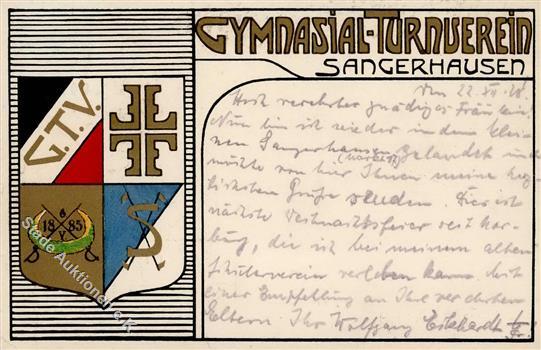 GYMNASIAL-TURNVEREIN
SANGERHAUSEN
G.T.V.
6
1885
V
Stade Auktionen e.K.
den 22. XII. 18.
Hoch verehrtes gnädiges Fräulein!
Nun bin ich wieder in dem klei-
nen Sangerhausen gelandet und
möchte von hier Ihnen meine herz-
lichsten Grüße senden. Hier ist
nächste Weihnachtsfeier
die ich bei meinem alten
Schülerverein verleben kann. Mit
einer Empfehlung an Ihre verehrten
Eltern. Ihr Wolfgang